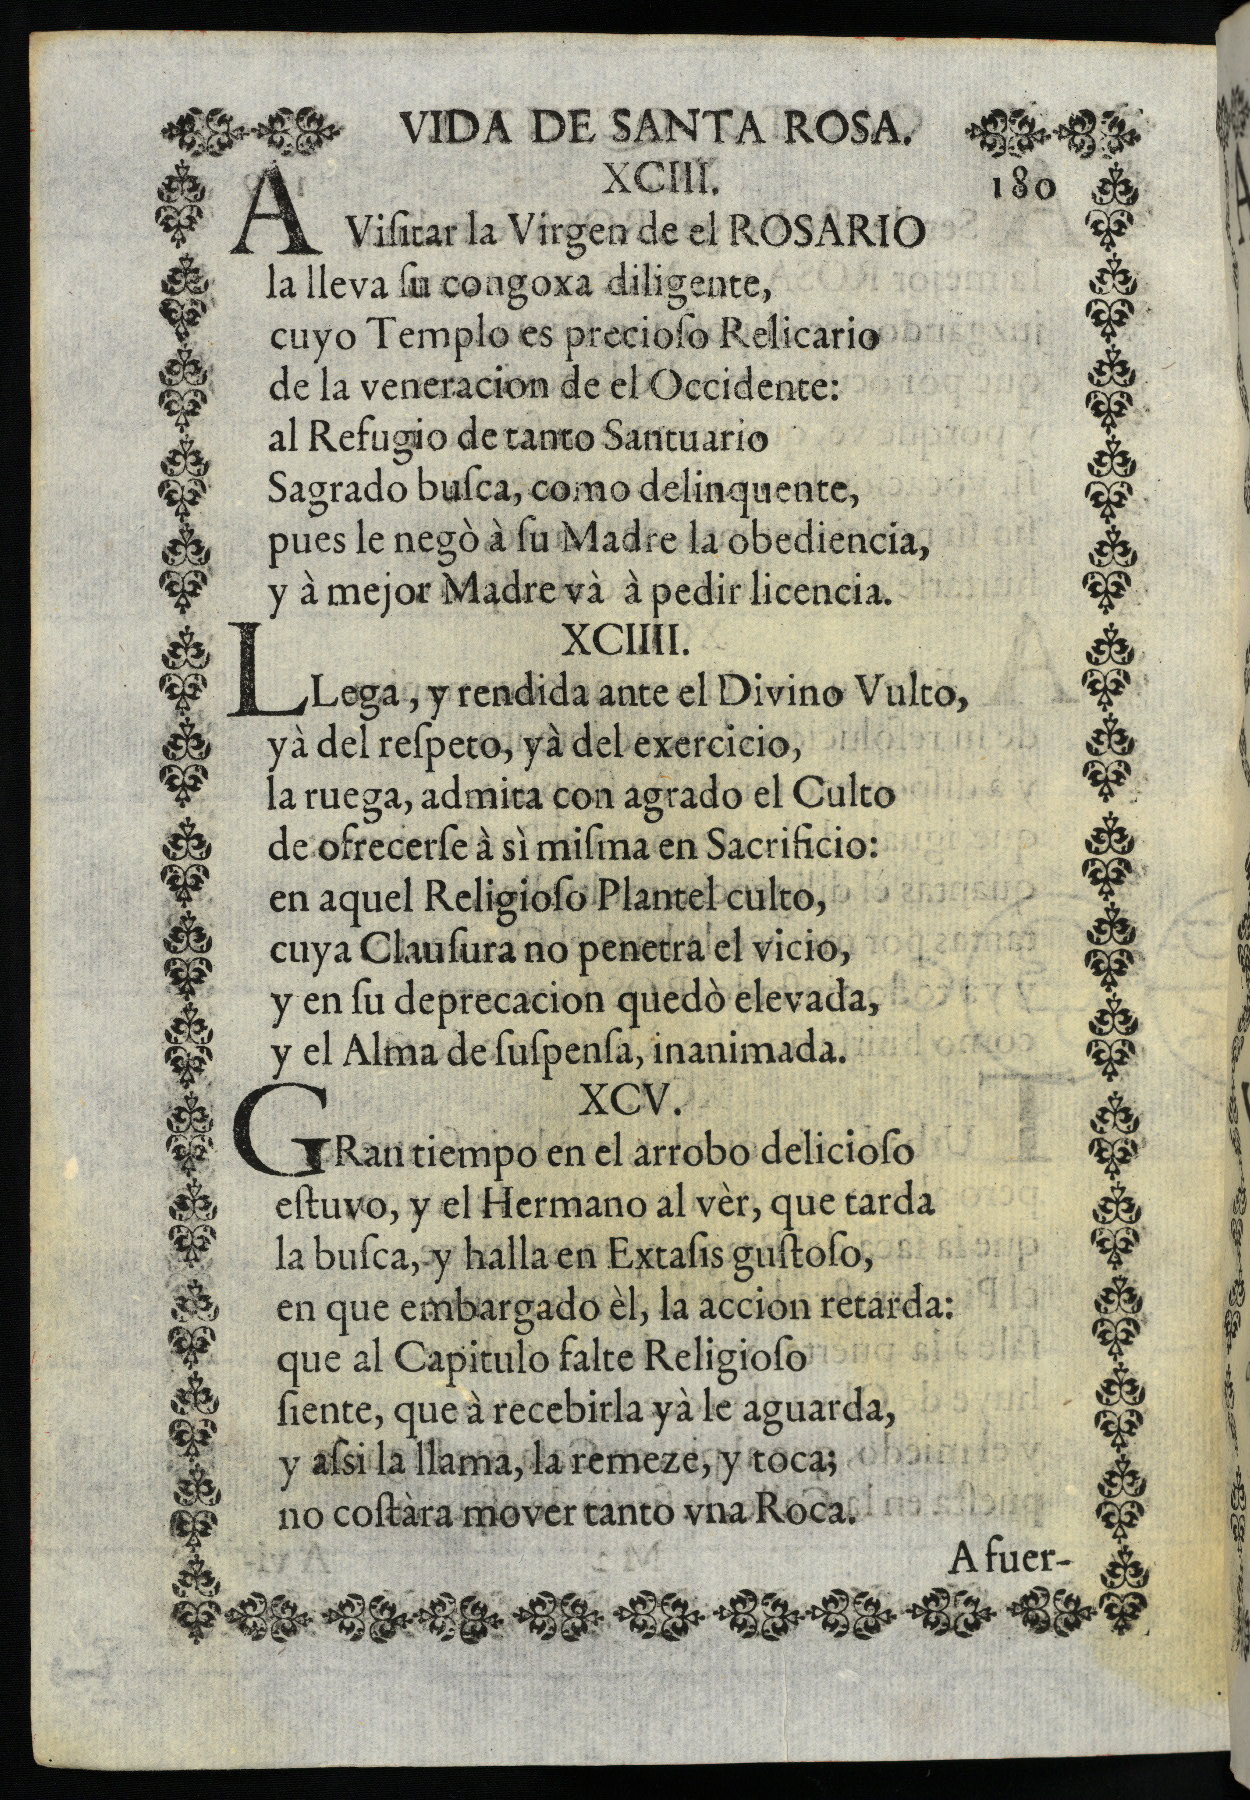 VIDA DE SANTA ROSA.
XCIII. 180
A Viſitar la Virgen de el ROSARIO
la lleva ſu congoxa diligente,
cuyo Templo es precioſo Relicario
de la veneracion de el Occidente:
al Refugio de tanto Santuario
Sagrado buſca, como delinquente,
pues le negò à ſu Madre la obediencia,
y à mejor Madre và à pedir licencia.
XCIIII.
LLega, y rendida ante el Divino Vulto,
yà del reſpeto, yà del exercicio,
la ruega, admita con agrado el Culto
de ofrecerſe à sì miſma en Sacrificio:
en aquel Religioſo Plantel culto,
cuya Clauſura no penetra el vicio,
y en ſu deprecacion quedò elevada,
y el Alma de ſuſpenſa, inanimada.
XCV.
GRan tiempo en el arrobo delicioſo
eſtuvo, y el Hermano al vèr, que tarda
la buſca, y halla en Extaſis guſtoſo,
en que embargado èl, la accion retarda:
que al Capitulo falte Religioſo
ſiente, que à recebirla yà le aguarda,
y aſsi la llama, la remeze, y toca;
no coſtàra mover tanto vna Roca.
A fuer-